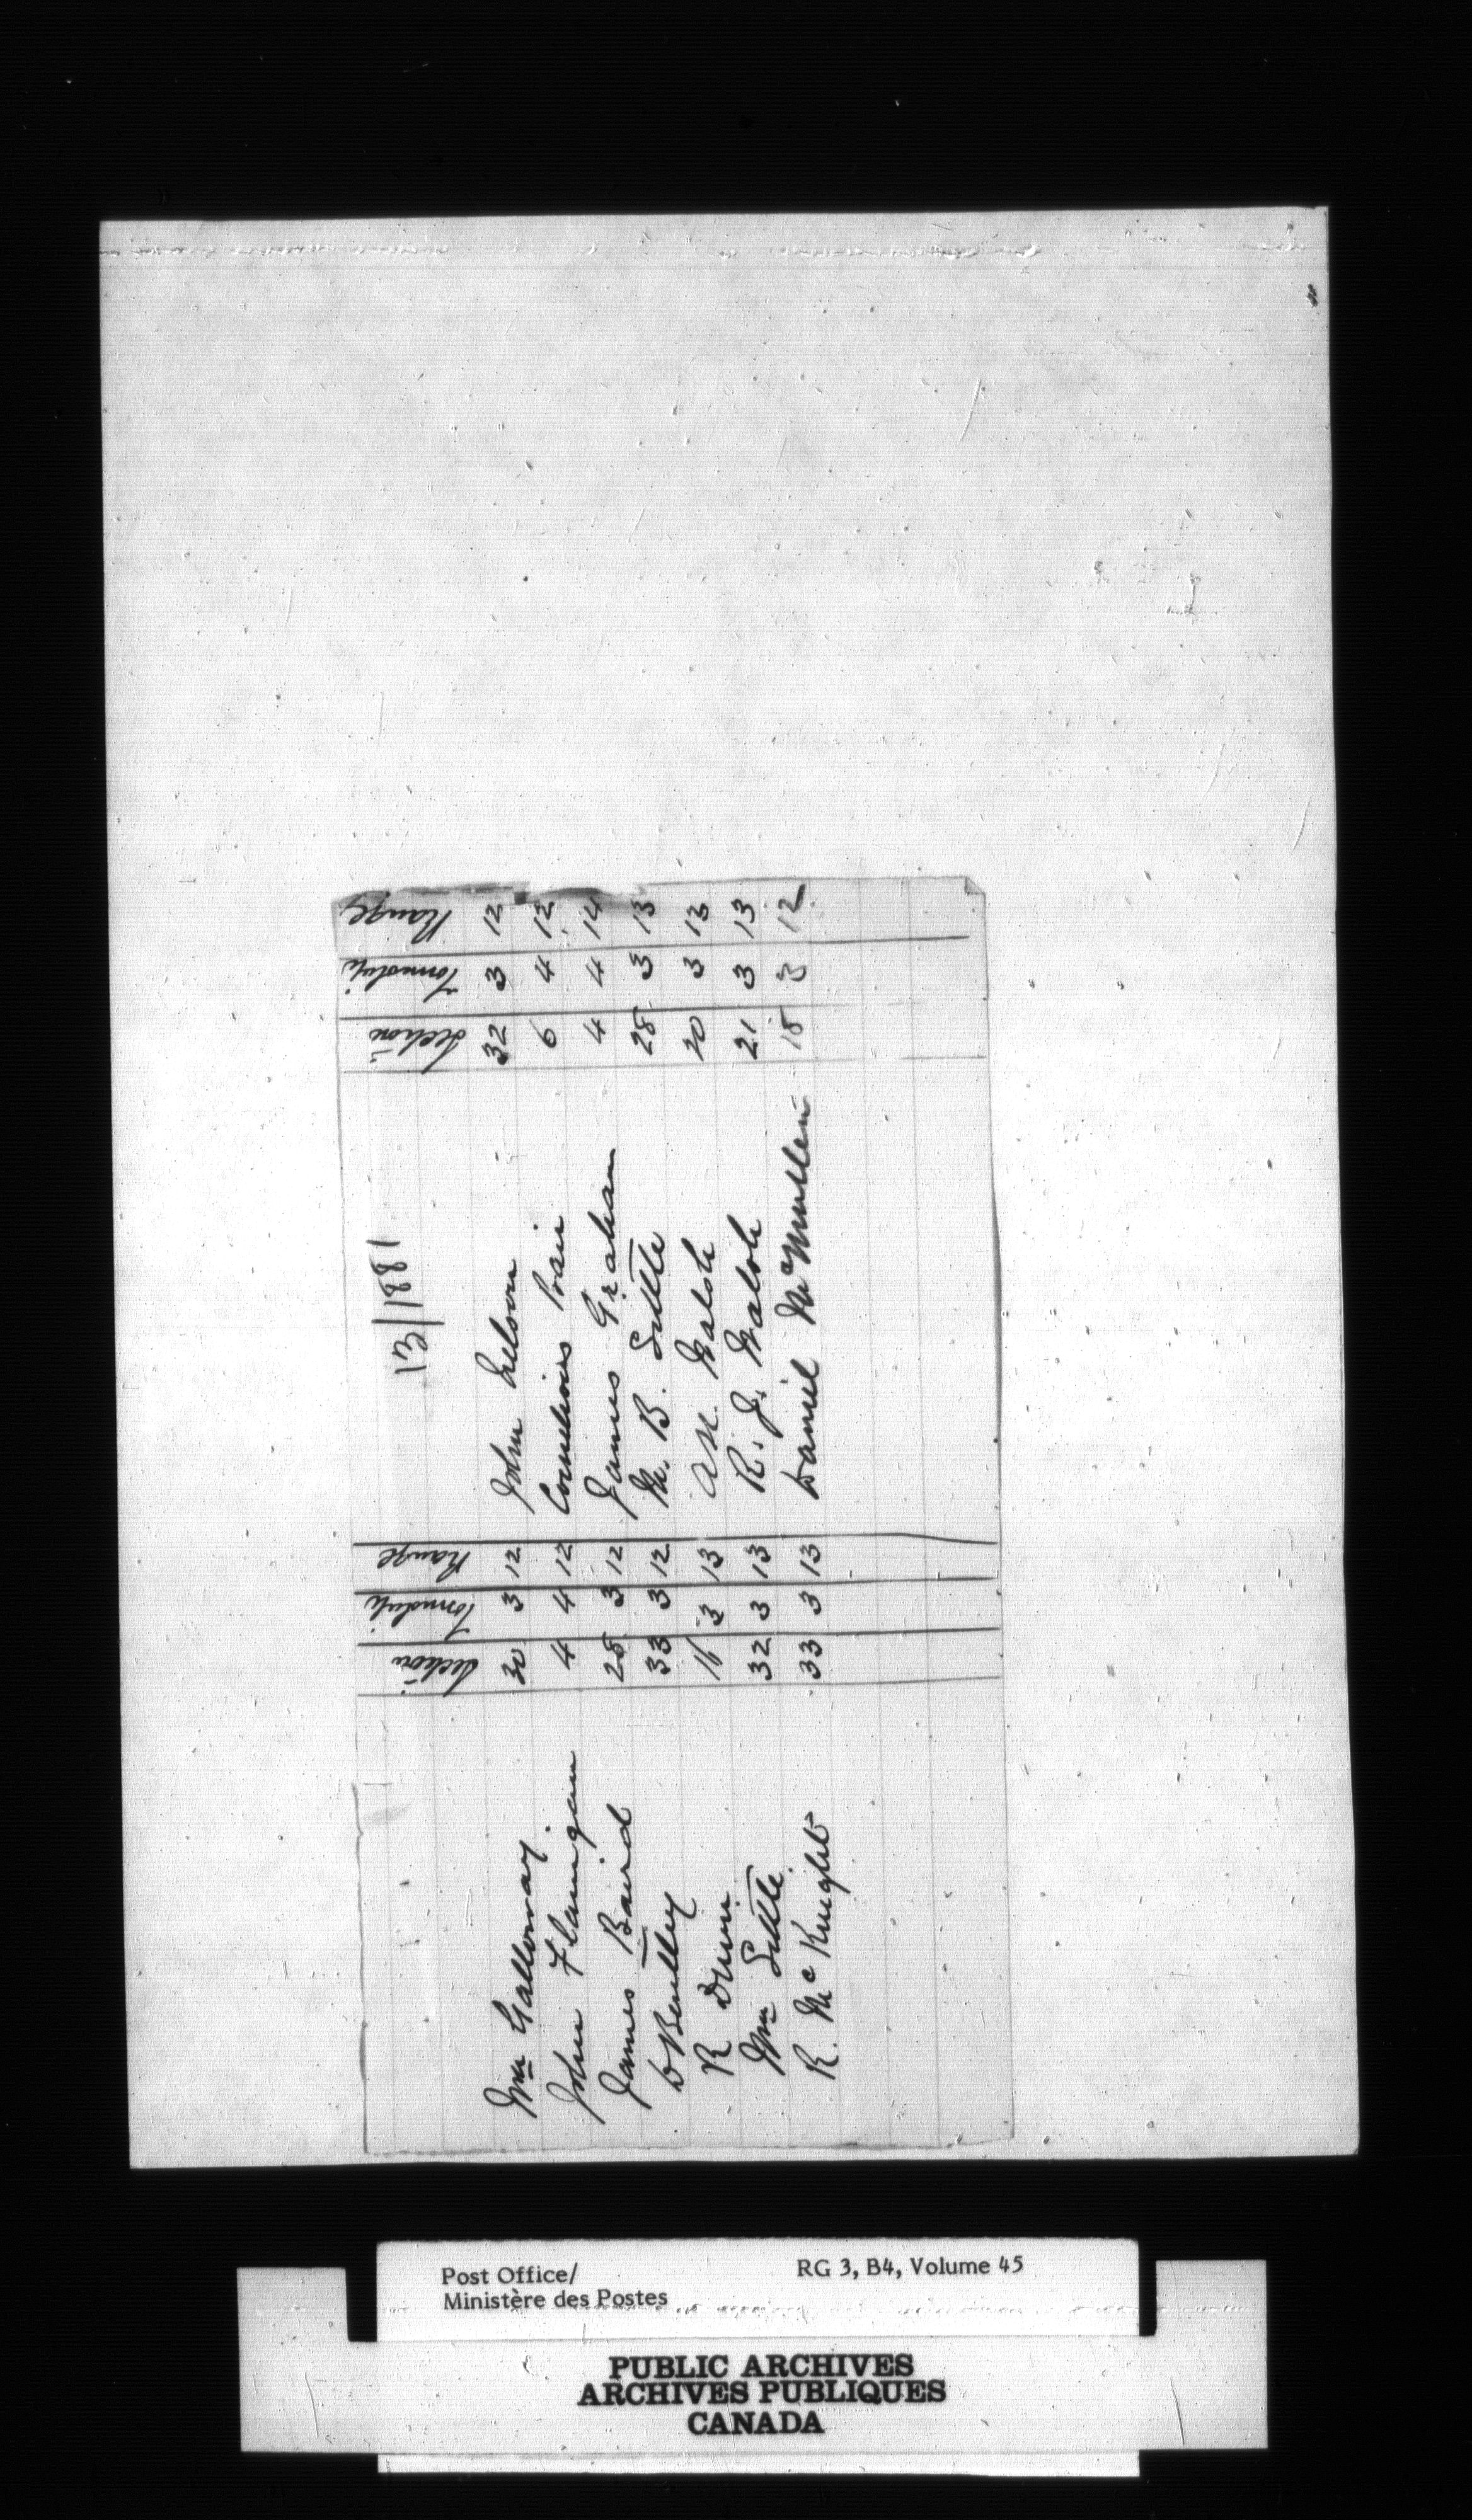 13/1881
Section Township Range Section Township Range
Wm Galloway. 30 3 12 John Nelson 32 3 12
John Flanigan 4 4 12 Cornelious 6 4 12
James Baird 28 3 12 James Graham 4 4 14
D Bentley 33 3 12 M. B. Little 28 3 13
R Dunn. 16 3 13 Walsh 20 3 13
Wm Little. 32 3 13 R. J. Walsh 21 3 13
R. McKnight 33 3 13 Daniel McMullen 18 3 12
Post Office/ RG 3, B4, Volume 45
Ministère des Postes
PUBLIC ARCHIVES
ARCHIVES PUBLIQUES
CANADA